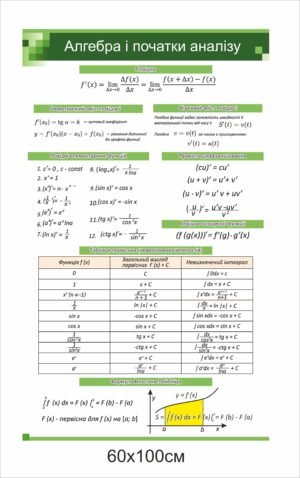 Алгебра і початки аналізу
Похідна
f'(x) = lim Δx→0 Δf(x)/Δx = lim Δx→0 (f(x + Δx) − f(x))/Δx
Геометричний зміст похідної
f'(x₀) = tg α = k – кутовий коефіцієнт
y − f'(x₀)(x − x₀) + f(x₀) – рівняння дотичної
до графіка функції
Фізичний зміст похідної
S'(t) = v(t)
v = v(t)
v'(t) = a(t)
Похідні елементарних функцій
1. c' = 0 , c - const
2. x' = 1
5. (eˣ)' = eˣ
6. (aˣ)' = aˣlna
7. (ln x)' = 1/x
8. (logₐx)' = 1/xlna
9. (sin x)' = cos x
10. (cos x)' = -sin x
11. (tg x)' = 1/cos²x
12. (ctg x)' = - 1/sin²x
Правила диференціювання
(cu)' = cu'
(u + v)' = u' + v'
(u · v)' = u' v + uv'
(u/v)' = (u'v -uv')/v²
Похідна складеної функції
(f (g(x)))' = f'(g) · g'(x)
Таблиця первісних (невизначених інтегралів)
Функція f (x) Загальний вигляд первісних F (x) + C Невизначений інтеграл
0 C ∫ 0dx = c
1 x + C ∫ dx = x + C
xⁿ (n ≠ -1) xⁿ⁺¹/(n + 1) + C ∫ xⁿdx = xⁿ⁺¹/(n+1) + C
1/x ln |x| + C ∫ dx/x = ln |x| + C
sin x -cos x + C ∫ sin xdx = -cos x + C
cos x sin x + C ∫ cos xdx = sin x + C
1/cos²x tg x + C ∫ dx/cos²x = tg x + C
1/sin²x -ctg x + C ∫ dx/sin²x = -ctg x + C
eˣ eˣ + C ∫ eˣdx = eˣ + C
aˣ aˣ/lna + C ∫ aˣdx = aˣ/lna + C
Формула Ньютона-Лейбніца
∫ₐᵇ f (x) dx = F (x) |ₐᵇ = F (b) - F (a)
F (x) - первісна для f (x) на [a; b]
y
y = f (x)
S = ∫ₐᵇ f (x) dx = F (x) |ₐᵇ = F (b) - F (a)
a b x
60х100см